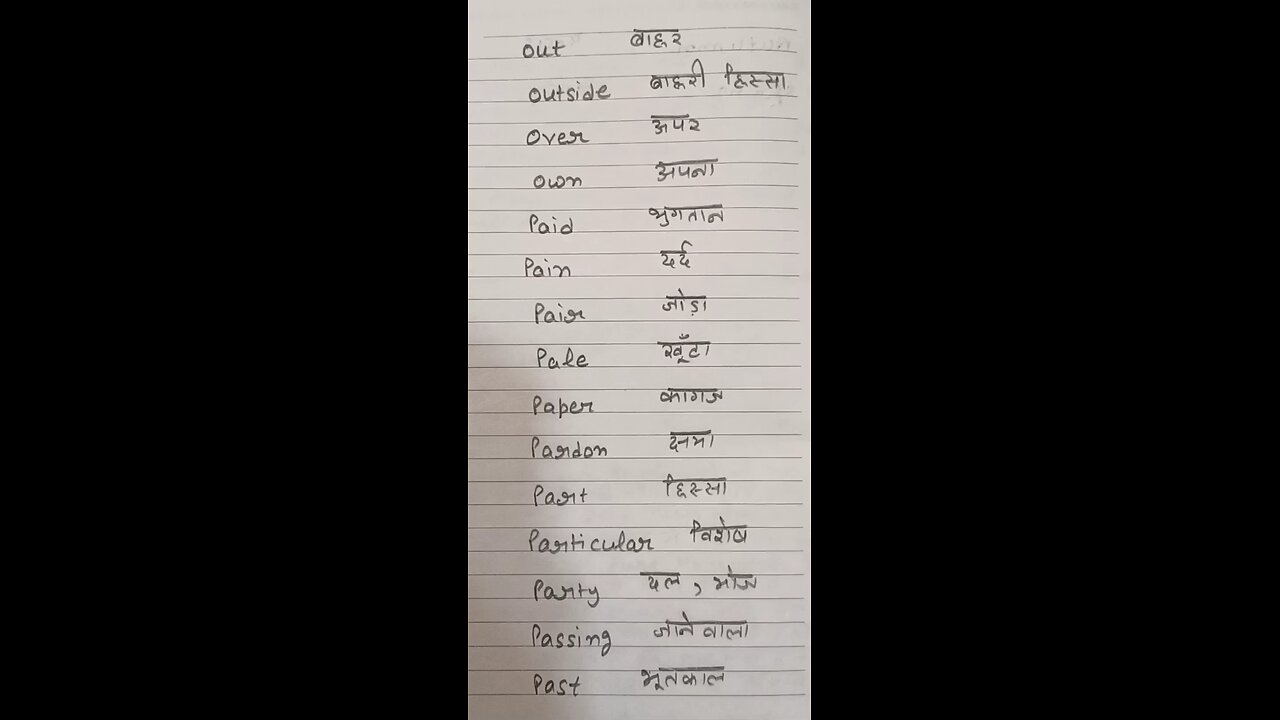 out बाहर
outside बाहरी हिस्सा
over अपर
own अपना
Paid भुगतान
Pain दर्द
Pair जोड़ा
Pale खूँटा
Paper कागज
Pardon क्षमा
Part हिस्सा
Particular विशेष
Party दल, भोज
Passing जाने वाला
Past भूतकाल